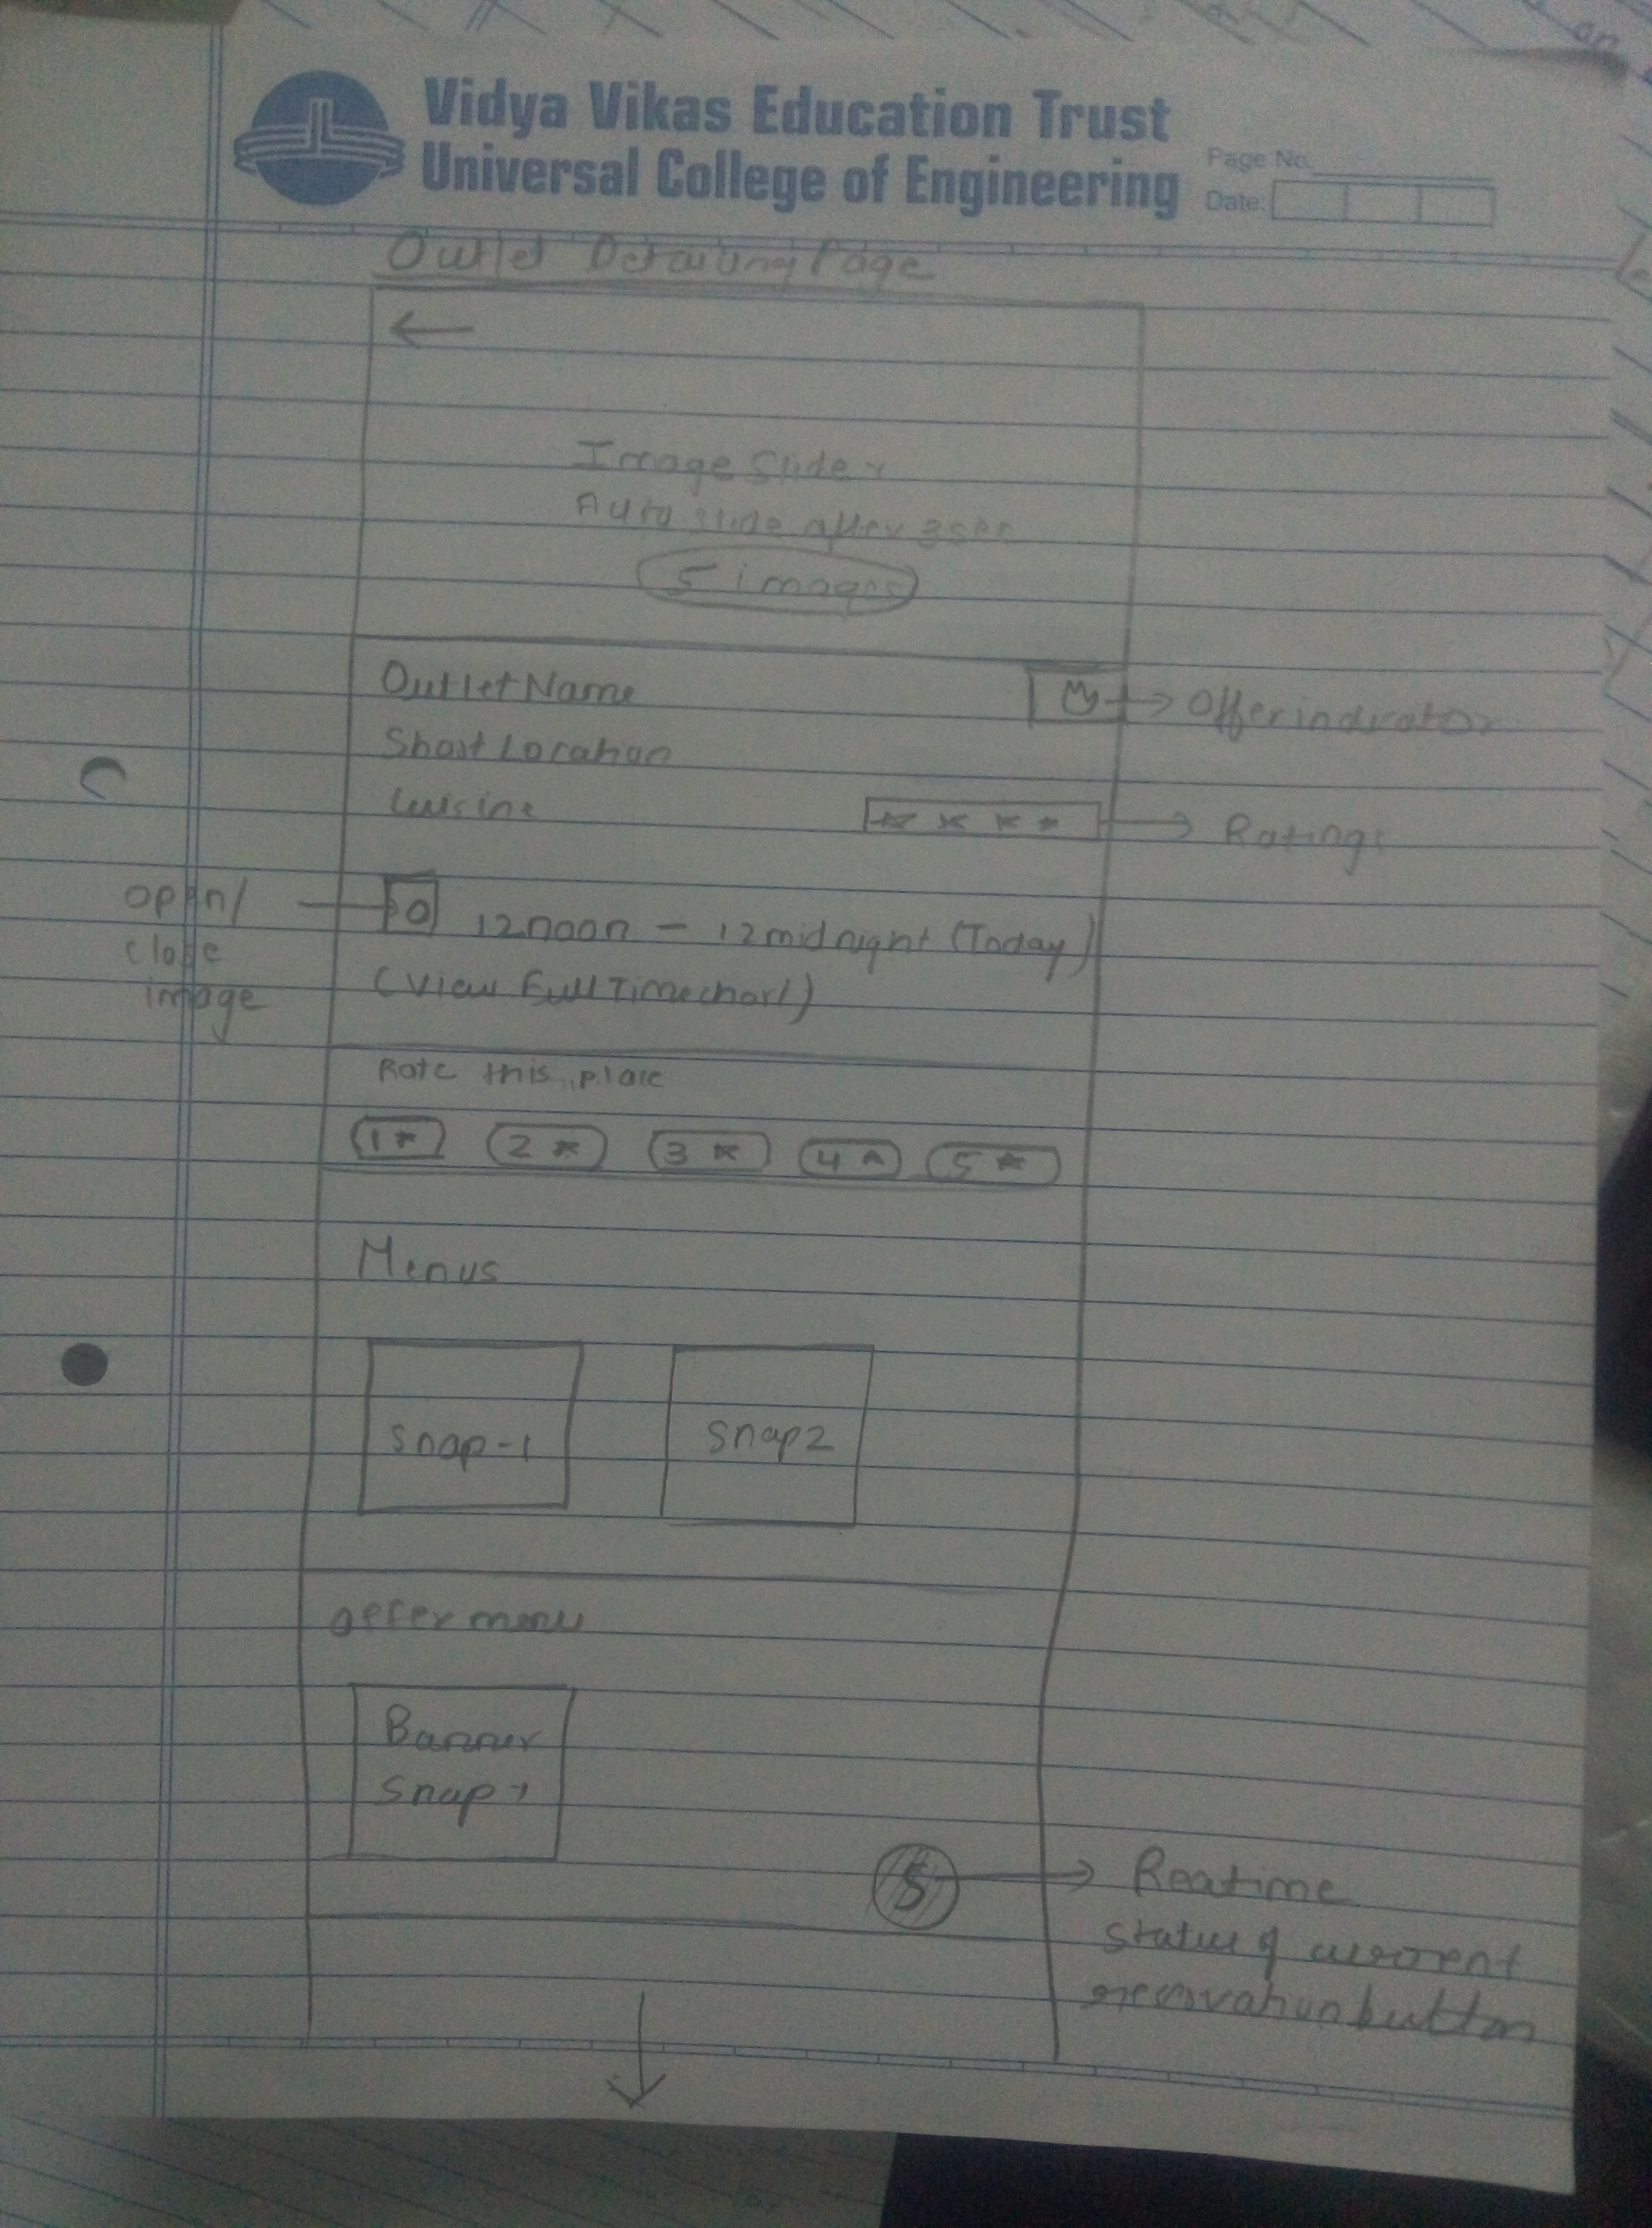 Vidya Vikas Education Trust
Universal College of Engineering
Page No.
Date:
Outlet Detailing Page
←
Image Slider
Auto slide after 3sec
5 images
Outlet Name
→ Offer indicator
Short Location
Cuisine
★ ★ ★ ★ → Ratings
open/
close
image
O 12noon - 12midnight (Today)
(View Full Timechart)
Rate this place
1★ 2★ 3★ 4★ 5★
Menus
Snap-1
Snap2
offer menu
Banner
Snap 1
5 → Reatime
status of current
reservation button